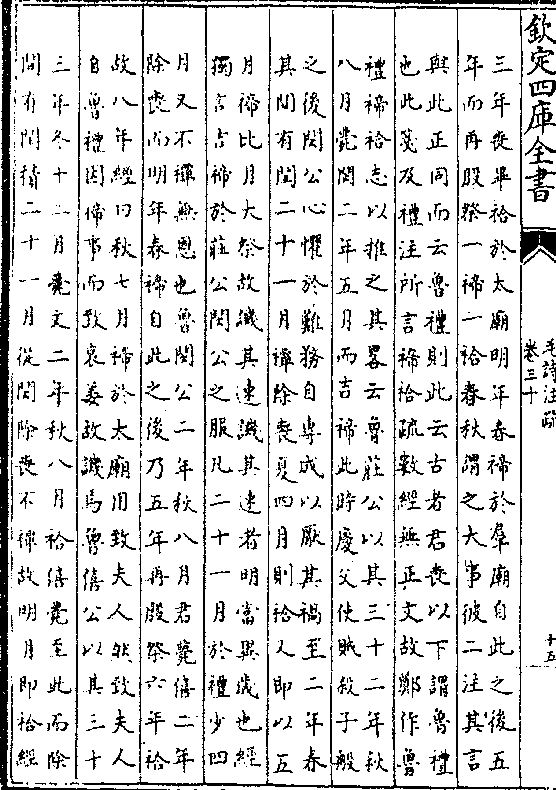 欽定四庫全書
毛詩注疏
卷三十
十五
三年喪畢祫於太廟明年春禘於羣廟自此之後五
年而再殷祭一禘一祫春秋謂之大事彼二注其言
與此正同而云魯禮則此云古者君喪以下謂魯禮
也此箋及禮注所言禘祫疏數經無正文故鄭作魯
禮禘祫志以推之其畧云魯莊公以其三十二年秋
八月薨閔二年五月而吉禘此時慶父使賊殺子般
之後閔公心懼於難務自專成以厭其禍至二年春
其間有閏二十一月禫除喪夏四月則祫又即以五
月禘比月大祭故譏其速譏其速者明當異歲也經
獨言吉禘於莊公閔公之服凡二十一月於禮少四
月又不禫無恩也魯閔公二年秋八月君薨僖二年
除喪而明年春禘自此之後乃五年再殷祭六年祫
故八年經曰秋七月禘於太廟用致夫人然致夫人
自魯禮因禘事而致哀姜故譏焉魯僖公以其三十
三年冬十二月薨文二年秋八月祫僖薨至此而除
間有閏積二十一月從閏除喪不禫故明月即祫經